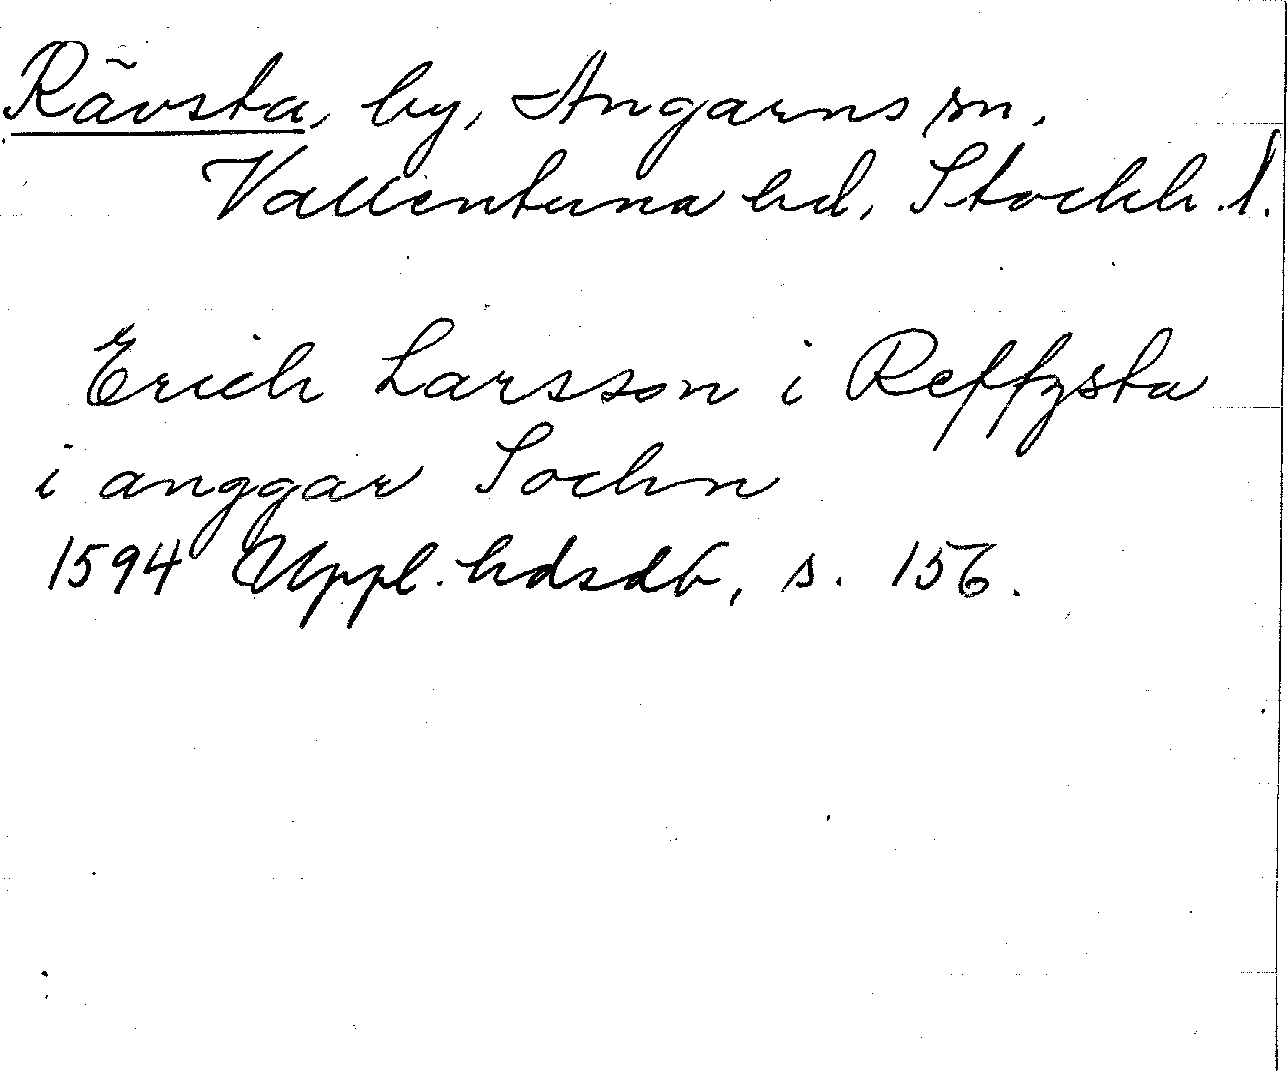 Rävsta, by, Angarns sn,
Vallentuna hd, Stockh. l.
Erich Larsson i Reffzsta
i anggar Sochn
1594 Uppl. hdsdb, s. 156.